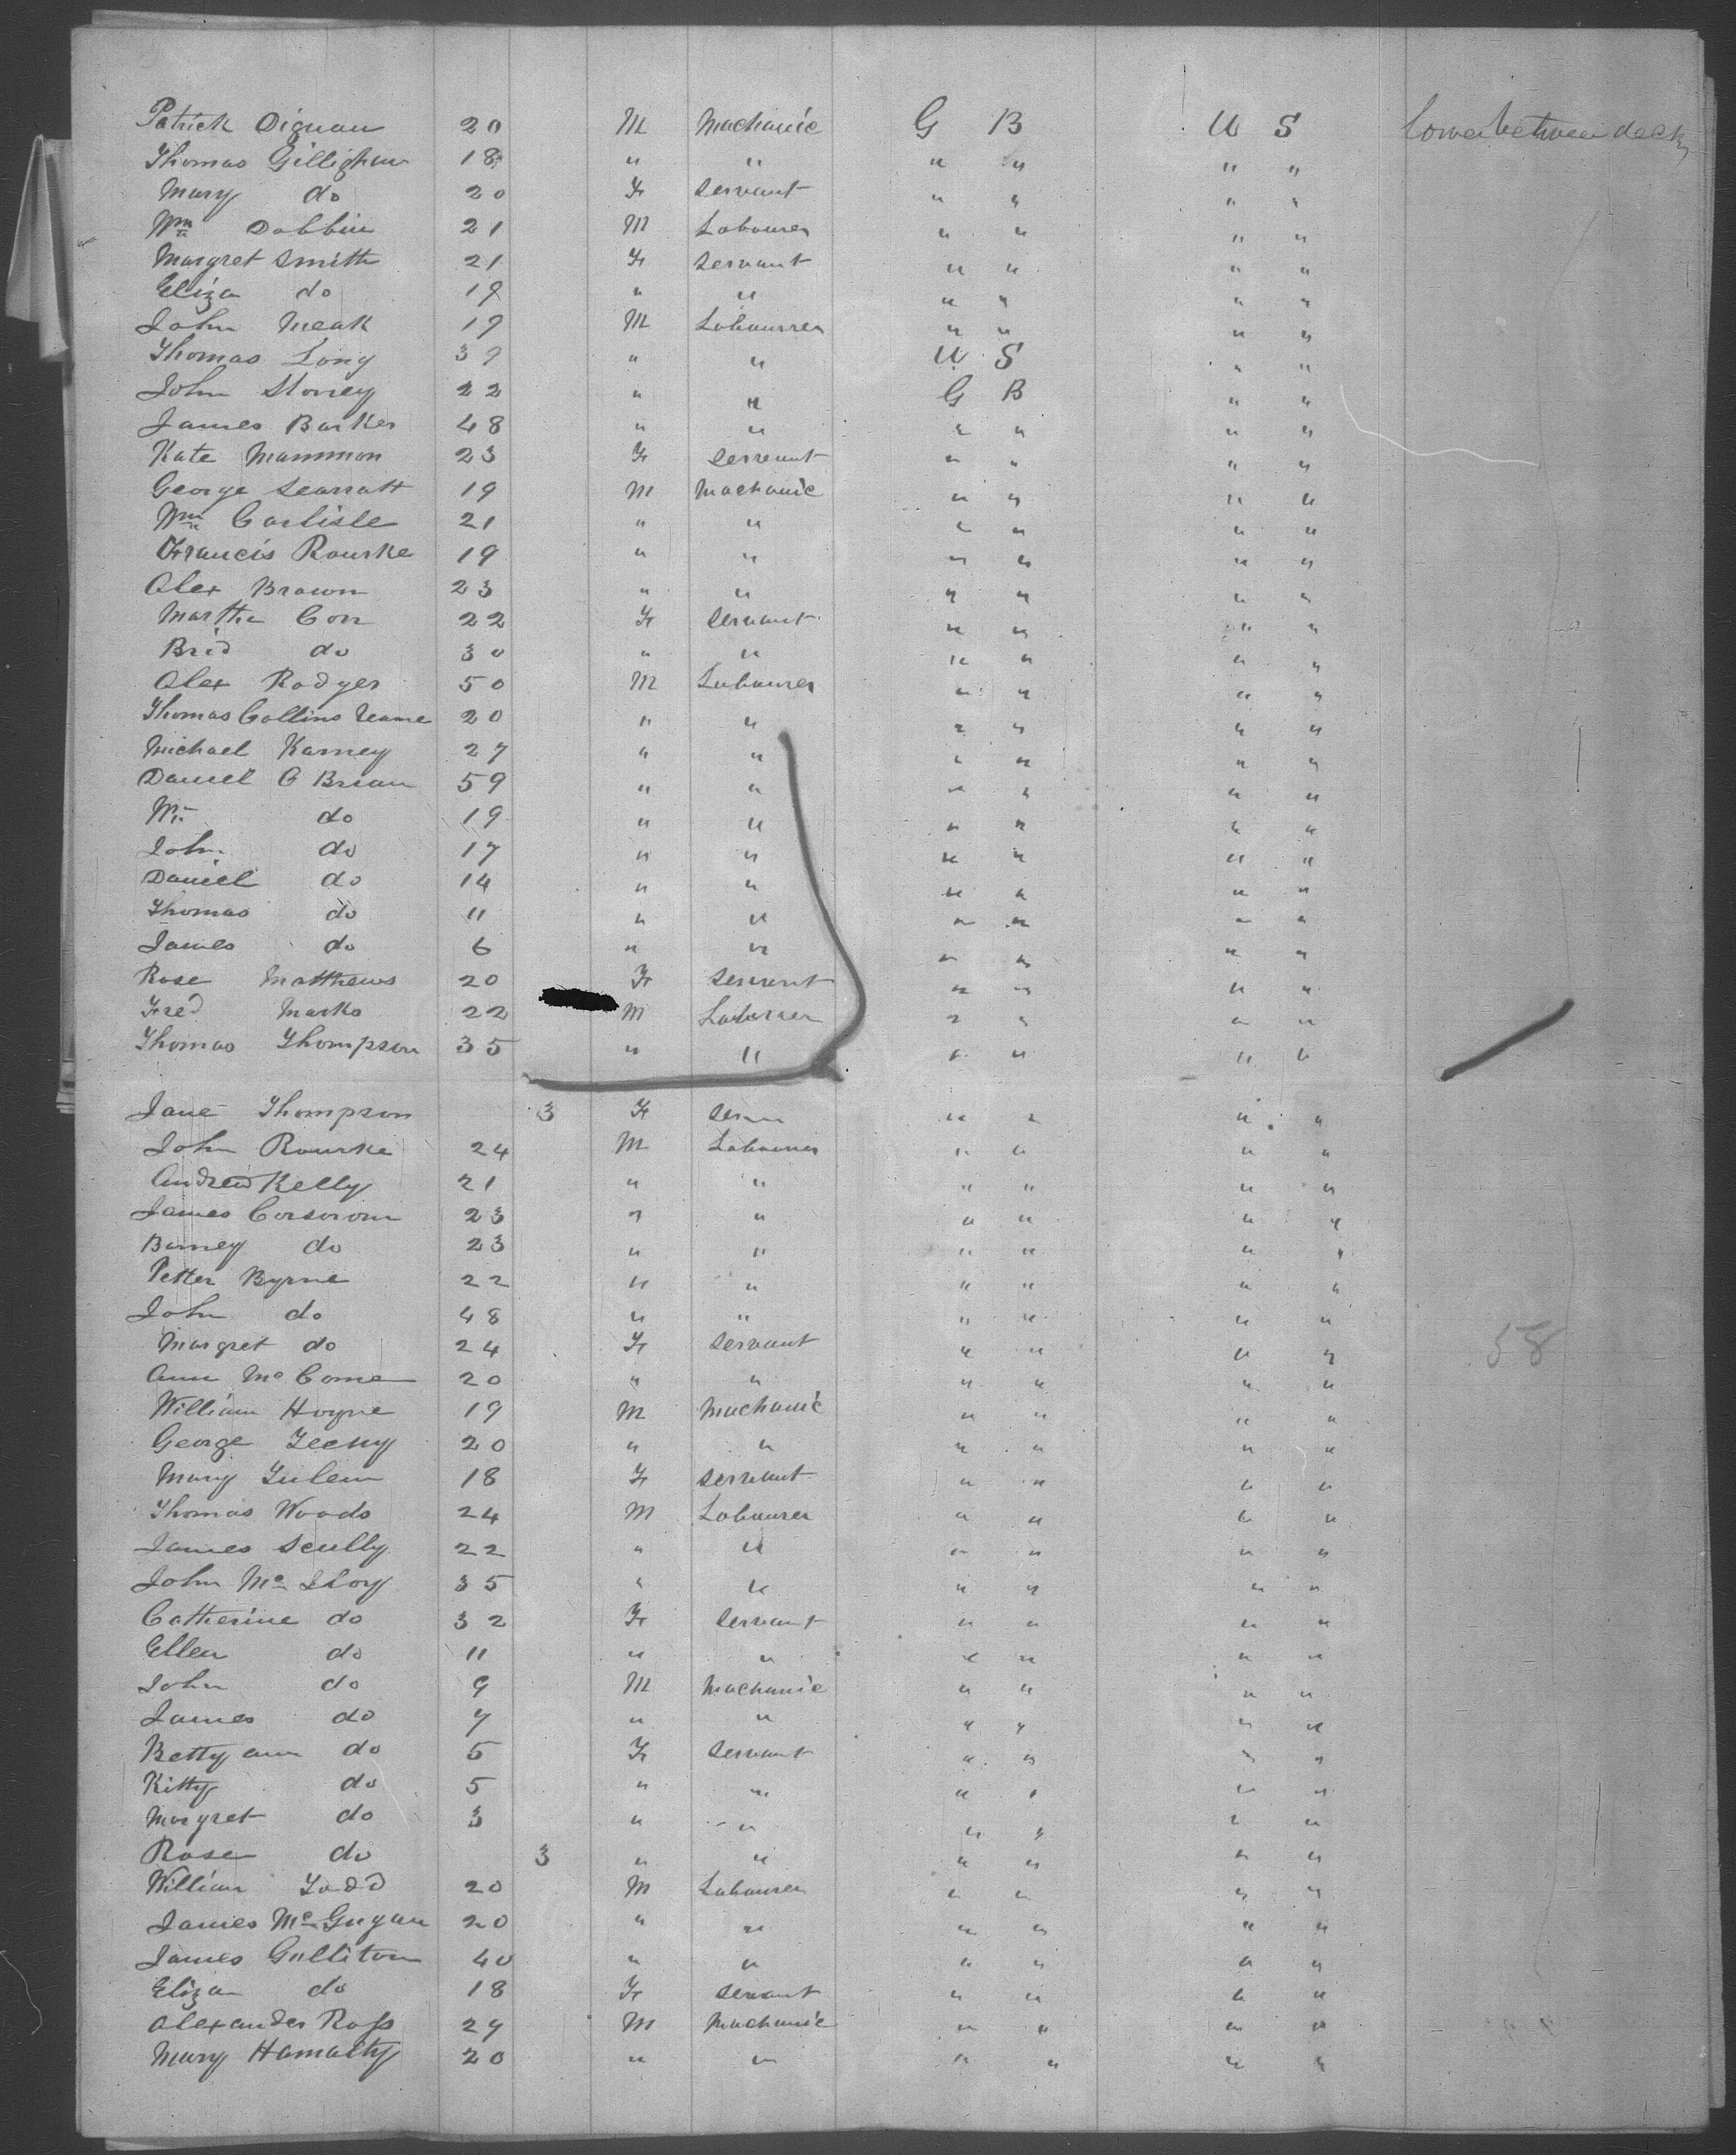 Patrick Dignan 20 M Machanic G B U S Lower between decks
Thomas Gillighan 18 " " " " " "
Mary do 20 F Servant " " " "
Wm Dobbin 21 M Labourer " " " "
Margret Smith 21 F Servant " " " "
Eliza do 19 " " " " " "
John Meak 19 M Labourer " " " "
Thomas Long 39 " " U S " "
John Storey 22 " " G B " "
James Barker 48 " " " " " "
Kate Mammon 23 F Servant " " " "
George Scarratt 19 M Machanic " " " "
Wm Carlisle 21 " " " " " "
Francis Rourke 19 " " " " " "
Alex Brown 23 " " " " " "
Martha Corr 22 F Servant " " " "
Brid do 30 " " " " " "
Alex Rodger 50 M Labourer " " " "
Thomas Collins 20 " " " " " "
Michael Karney 27 " " " " " "
Daniel O Brian 59 " " " " " "
Wm do 19 " " " " " "
John do 17 " " " " " "
Daniel do 14 " " " " " "
Thomas do 11 " " " " " "
James do 6 " " " " " "
Rose Matthews 20 F Servant " " " "
Fred Marks 22 M Labourer " " " "
Thomas Thompson 35 " " " " " "
Jane Thompson 3 F " " " "
John Rourke 24 M Labourer " " " "
Andrew Kelly 21 " " " " " "
James 23 " " " " " "
Barney do 23 " " " " " "
Petter Byrne 22 " " " " " "
John do 48 " " " " " "
Margret do 24 F Servant " " " " 58
Ann Mc Come 20 " " " " " "
William Hoyne 19 M Machanic " " " "
George 20 " " " " " "
Mary 18 F Servant " " " "
Thomas Woods 24 M Labourer " " " "
James Scully 22 " " " " " "
John Mc Iloy 35 " " " " " "
Catherine do 32 F Servant " " " "
Ellen do 11 " " " " " "
John do 9 M Machanic " " " "
James do 7 " " " " " "
Betty ann do 5 F Servant " " " "
Kitty do 5 " " " " " "
Margret do 3 " " " " " "
Rose do 3 " " " " " "
William Todd 20 M Labourer " " " "
James Mc Gugan 20 " " " " " "
James Gulliton 40 " " " " " "
Eliza do 18 F Servant " " " "
Alexander Ross 27 M Machanic " " " "
Mary 20 " " " " " "